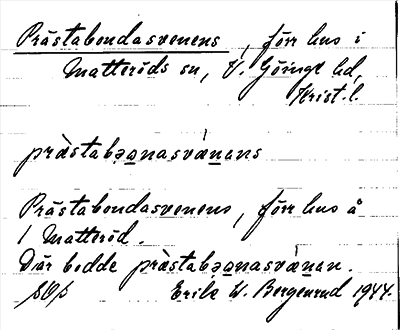 Prästabondasvenens, förr hus i
Matteröds sn, V. Göinge hd,
Krist. l.
prästabǫanasvänans
Prästabondasvenens, förr hus å
1 Matteröd.
Där bodde prästabǫanasvänan.
Erik W. Bergenrud 1944.